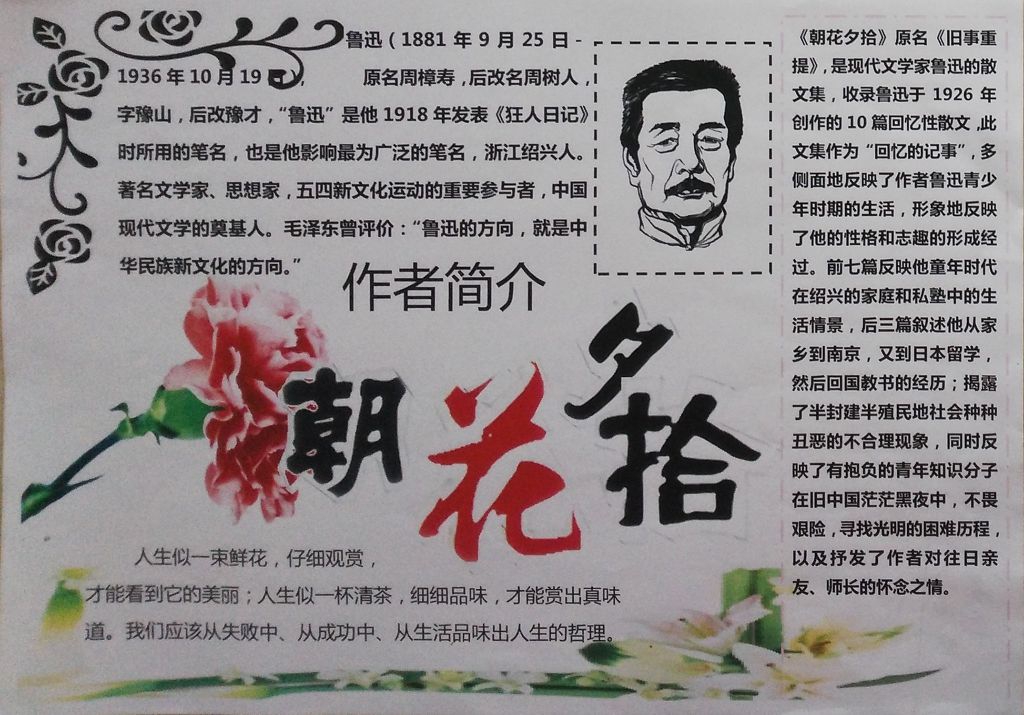 鲁迅（1881 年 9 月 25 日 -
1936 年 10 月 19 日，　　原名周樟寿，后改名周树人，
字豫山，后改豫才，“鲁迅”是他 1918 年发表《狂人日记》
时所用的笔名，也是他影响最为广泛的笔名，浙江绍兴人。
著名文学家、思想家，五四新文化运动的重要参与者，中国
现代文学的奠基人。毛泽东曾评价：“鲁迅的方向，就是中
华民族新文化的方向。”
作者简介
朝花夕拾
人生似一束鲜花，仔细观赏，
才能看到它的美丽；人生似一杯清茶，细细品味，才能赏出真味
道。我们应该从失败中、从成功中、从生活品味出人生的哲理。
《朝花夕拾》原名《旧事重
提》，是现代文学家鲁迅的散
文集，收录鲁迅于 1926 年
创作的 10 篇回忆性散文，此
文集作为“回忆的记事”，多
侧面地反映了作者鲁迅青少
年时期的生活，形象地反映
了他的性格和志趣的形成经
过。前七篇反映他童年时代
在绍兴的家庭和私塾中的生
活情景，后三篇叙述他从家
乡到南京，又到日本留学，
然后回国教书的经历；揭露
了半封建半殖民地社会种种
丑恶的不合理现象，同时反
映了有抱负的青年知识分子
在旧中国茫茫黑夜中，不畏
艰险，寻找光明的困难历程，
以及抒发了作者对往日亲
友、师长的怀念之情。